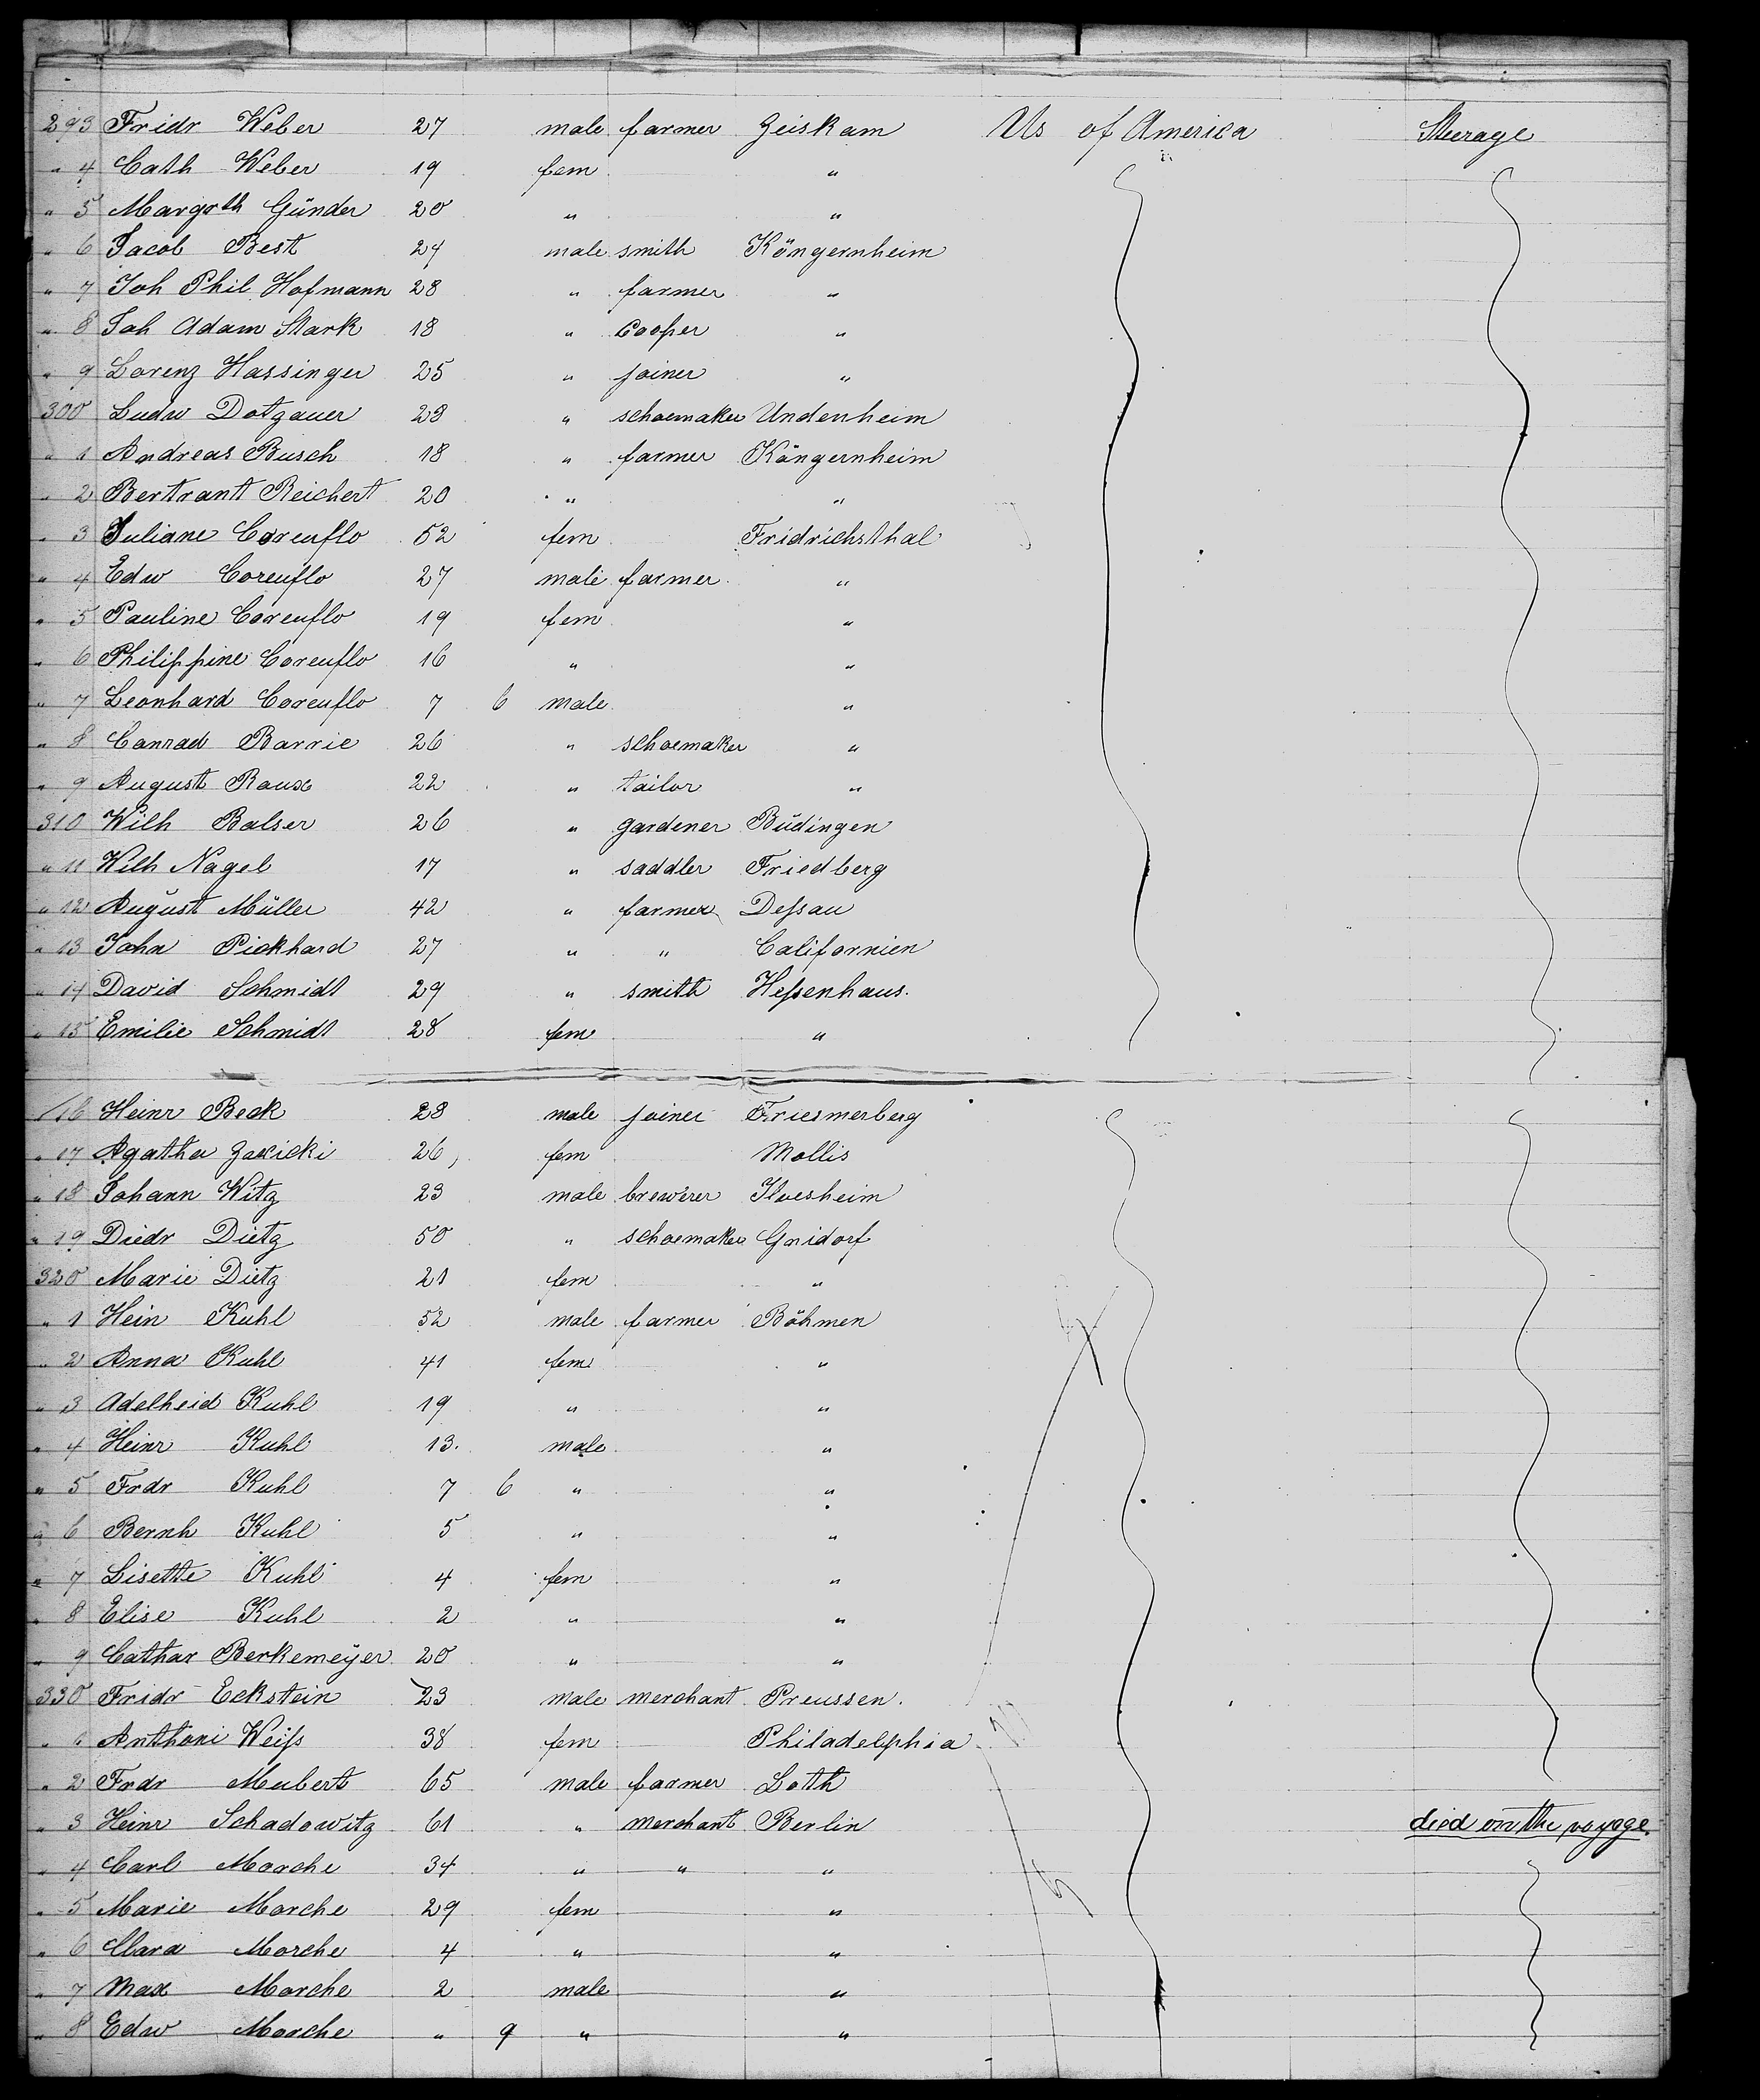 293 Fridr Weber 27 male farmer Zeiskam Us of America Steerage
" 4 Cath Weber 19 fem "
" 5 Margrth Günder 20 " "
" 6 Jacob Best 24 male smith Köngernheim
" 7 Joh Phil Hofmann 28 " farmer "
" 8 Joh Adam Stark 18 " Cooper "
" 9 Lorenz Hassinger 25 " joiner "
300 Ludw Dotzauer 23 " schoemaker Undenheim
" 1 Andreas Busch 18 " farmer Köngernheim
" 2 Bertrant Reichert 20 " "
" 3 Juliane Coreuflo 52 fem Fridrichsthal
" 4 Edw Coreuflo 27 male farmer "
" 5 Pauline Coreuflo 19 fem "
" 6 Philippine Coreuflo 16 " "
" 7 Leonhard Coreuflo 7 6 male "
" 8 Conrad Barrie 26 " schoemaker "
" 9 August Raux 22 " tailor "
310 Wilh Balser 26 " gardener Büdingen
" 11 Wilh Nagel 17 " saddler Friedberg
" 12 August Müller 42 " farmer Deſsau
" 13 John Pickhard 27 " " Californien
" 14 David Schmidt 29 " smith Heſsenhaus.
" 15 Emilie Schmidt 28 fem "
" 16 Heinr Beck 28 male joiner Friesmerberg
" 17 Agatha 26 fem Mollis
" 18 Johann Witz 23 male brewerer Ilvesheim
" 19 Diedr Dietz 50 " schoemaker Gnidorf
320 Marie Dietz 21 fem "
" 1 Hein Kuhl 52 male farmer Böhmen
" 2 Anna Kuhl 41 fem "
" 3 Adelheid Kuhl 19 " "
" 4 Heinr Kuhl 13. male "
" 5 Frdr Kuhl 7 6 " "
" 6 Bernh Kuhl 5 " "
" 7 Lisette Kuhl 4 fem "
" 8 Elise Kuhl 2 " "
" 9 Cathar Berkemeyer 20 " "
330 Fridr Eckstein 23 male merchant Preussen.
" 1 Anthoni Weiſs 38 fem Philadelphia
" 2 Frdr Mubert 65 male farmer Loth
" 3 Heinr Schadowitz 61 " merchant Berlin died on the voyage.
" 4 Carl Morche 34 " " "
" 5 Marie Morche 29 fem "
" 6 Clara Morche 4 " "
" 7 Max Morche 2 male "
" 8 Edw Morche " 9 " "